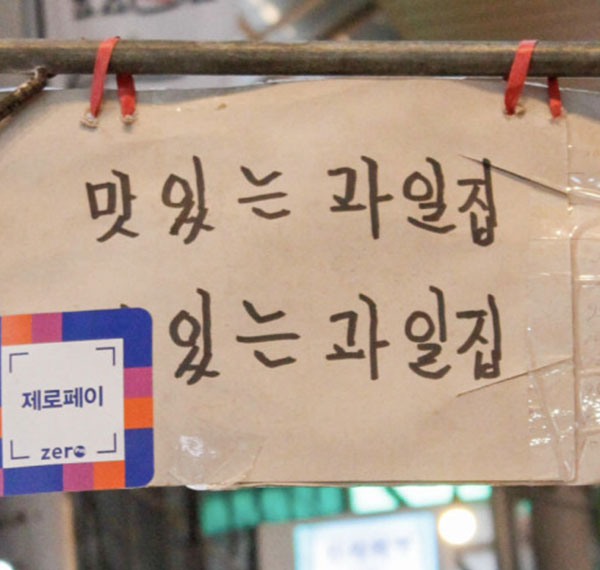 맛있는 과일집
있는 과일집
제로페이
zero